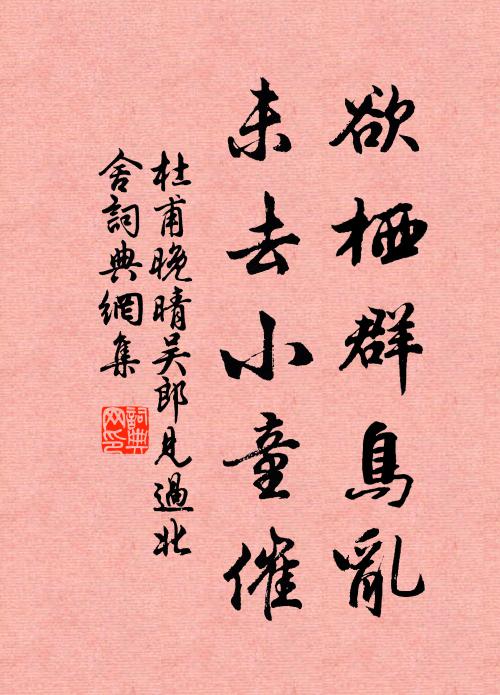 欲栖群鳥亂
未去小童催
杜甫晚晴吴郎見過北
舍詞典網集
詞典
网印